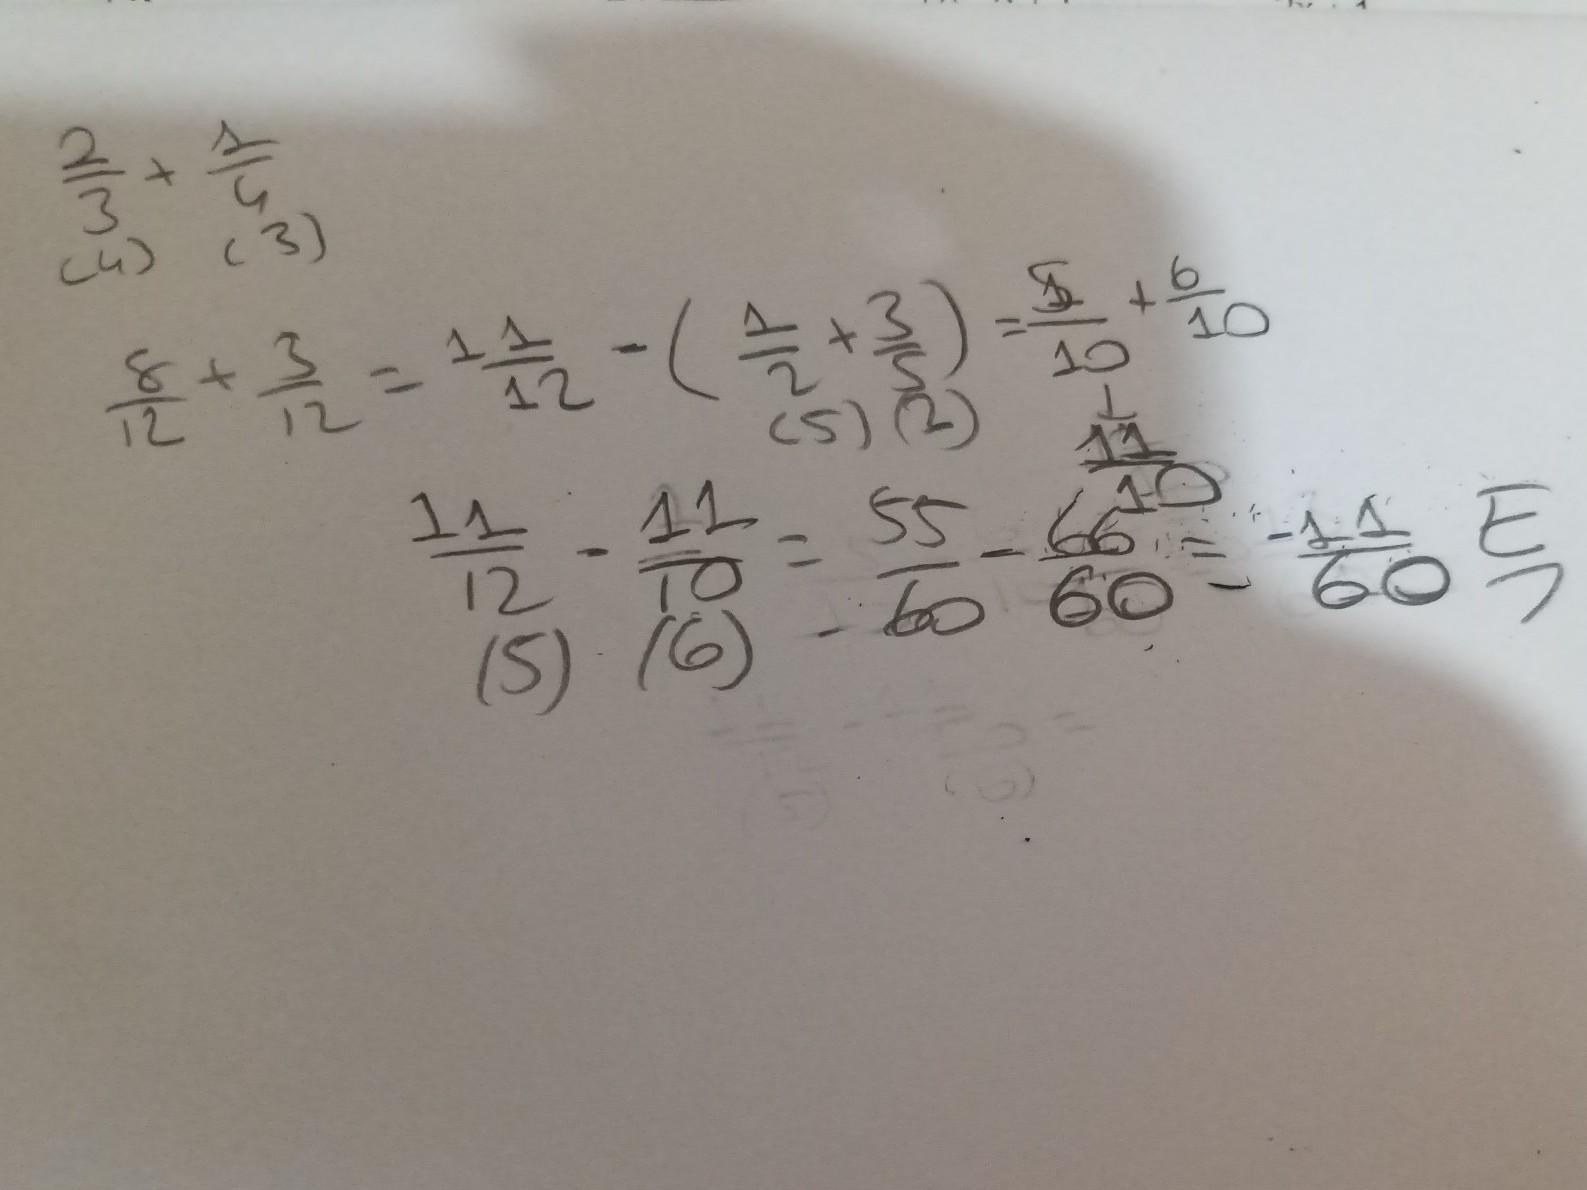 2/3 + 1/4
(4) (3)
8/12 + 3/12 = 11/12 - (1/2 + 3/5) = 5/10 + 6/10
(5) (2)
↓
11/10
11/12 - 11/10 = 55/60 - 66/60 = -11/60 E
(5) (6)